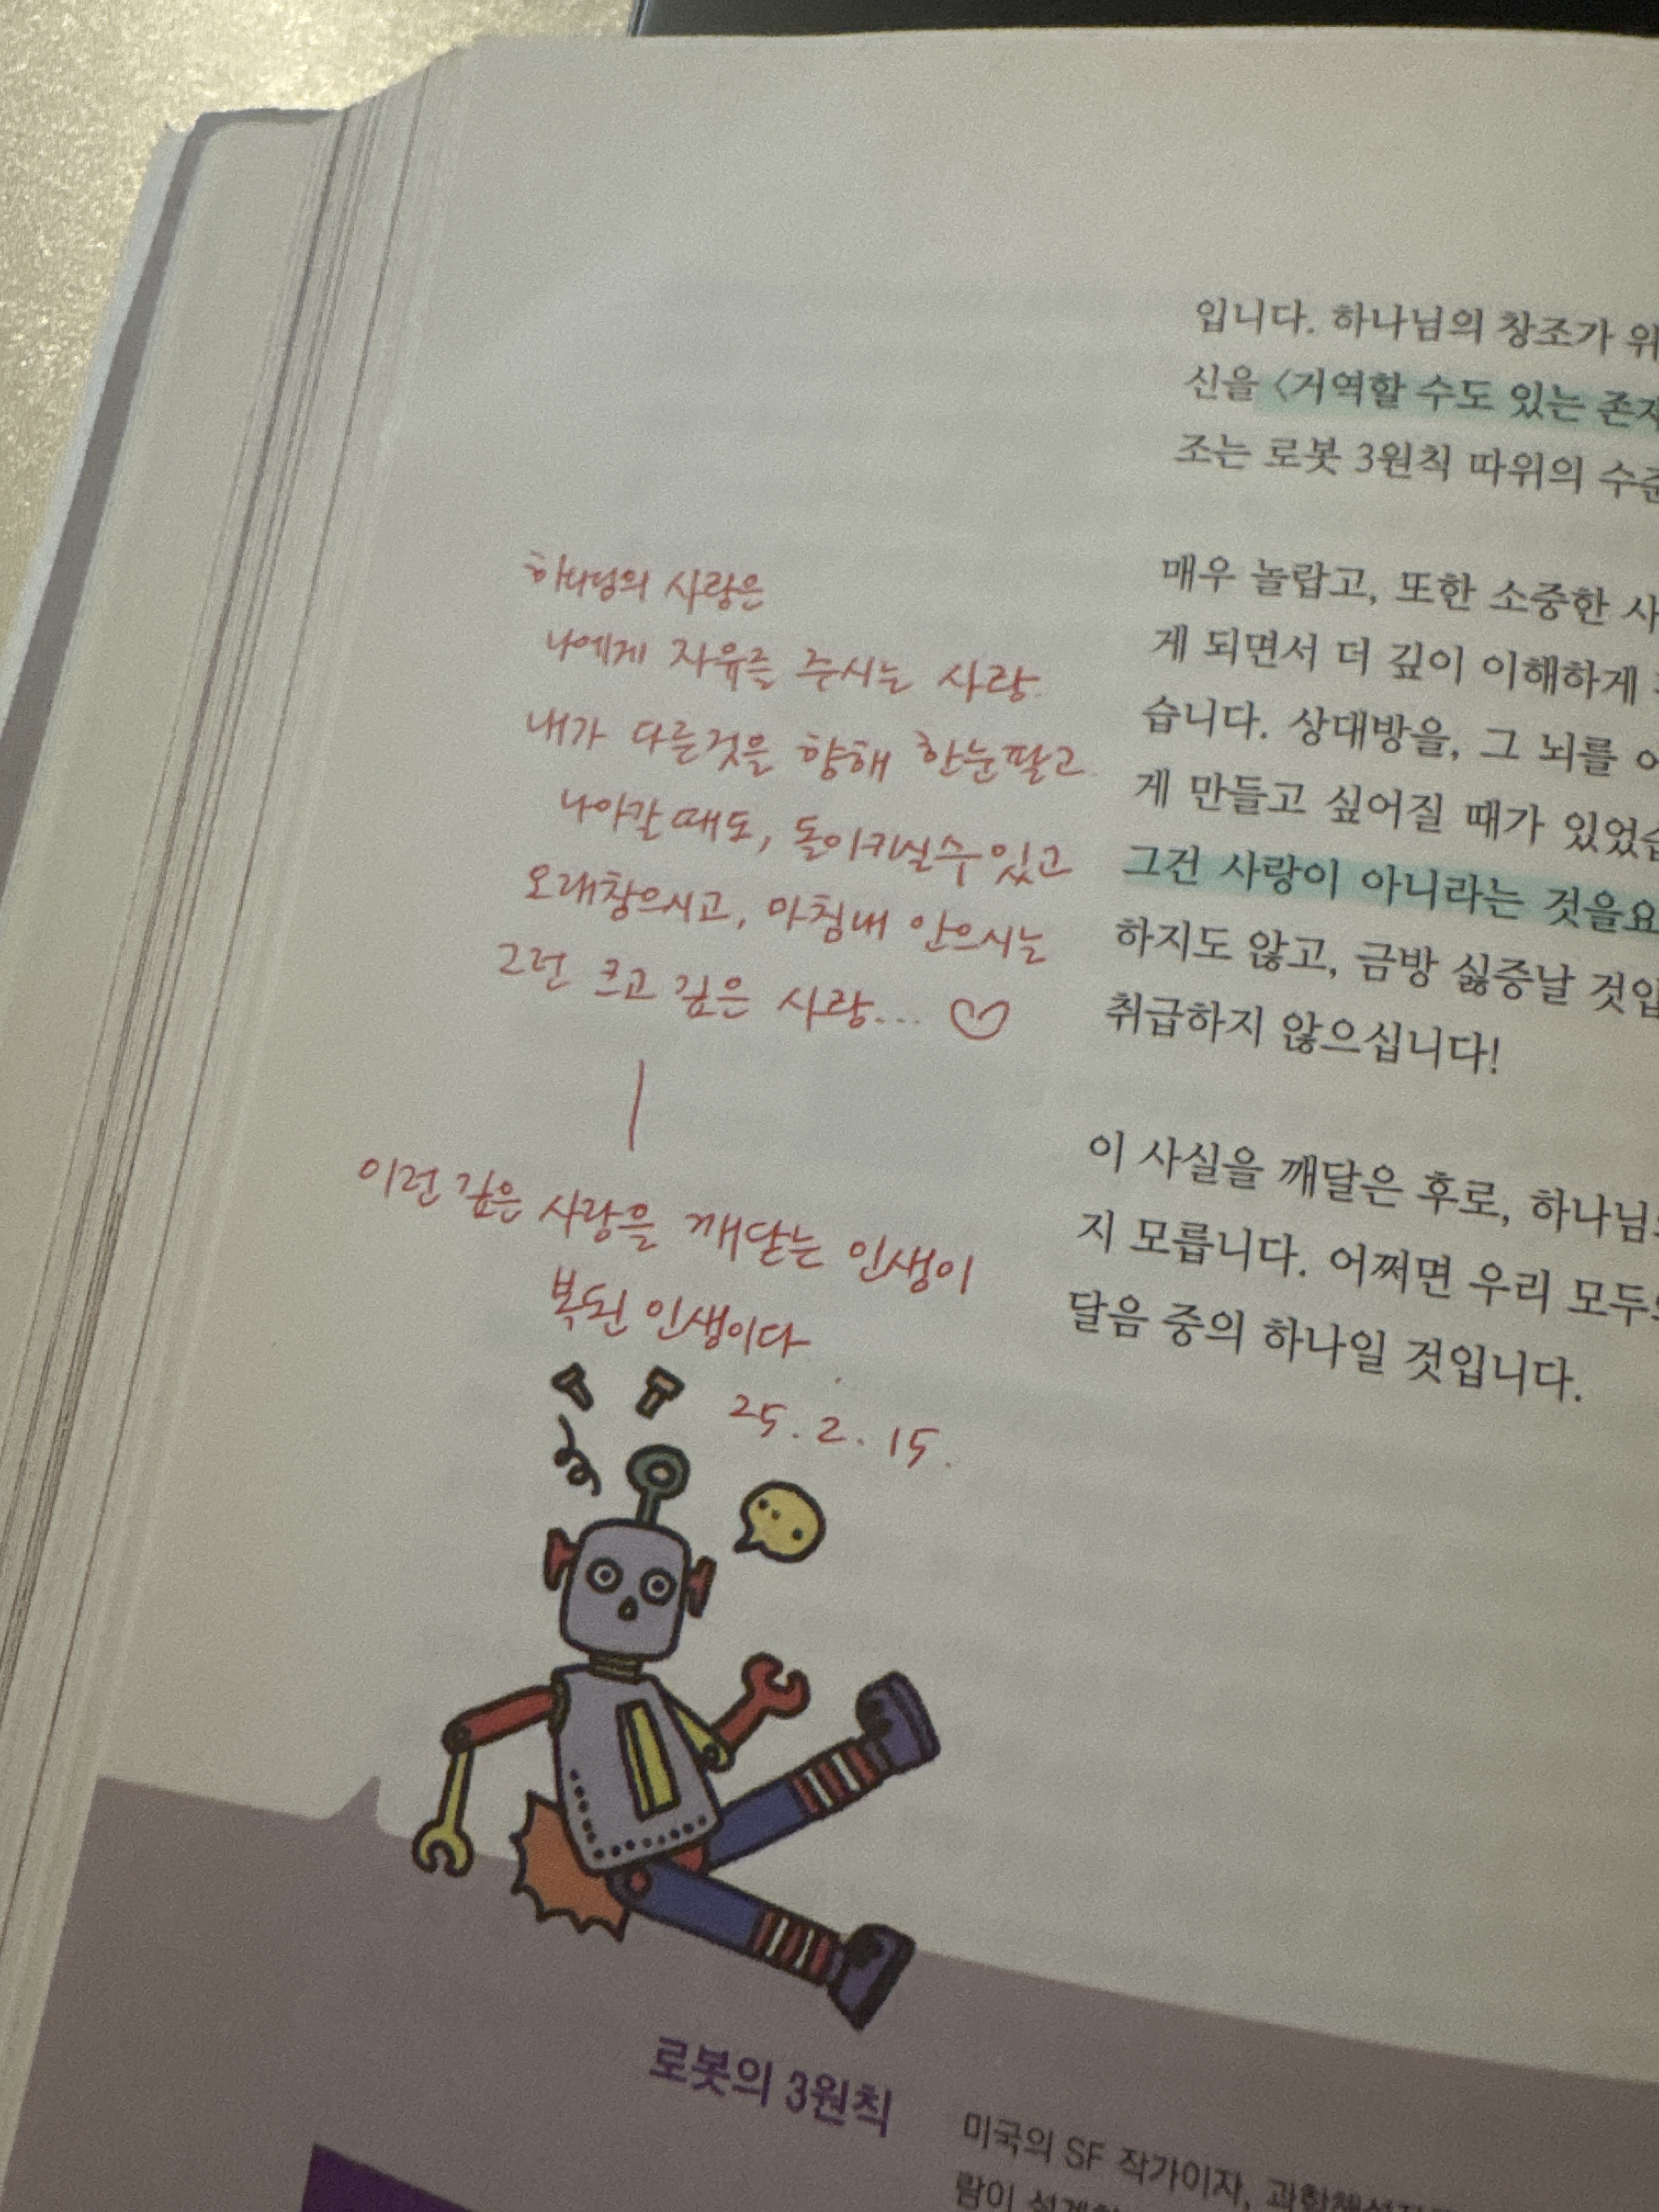 입니다. 하나님의 창조가 위
신을 〈거역할 수도 있는 존재
조는 로봇 3원칙 따위의 수준
매우 놀랍고, 또한 소중한 사
게 되면서 더 깊이 이해하게
습니다. 상대방을, 그 뇌를 어
게 만들고 싶어질 때가 있었습
그건 사랑이 아니라는 것을요
하지도 않고, 금방 싫증날 것입
취급하지 않으십니다!
이 사실을 깨달은 후로, 하나님
지 모릅니다. 어쩌면 우리 모두
달음 중의 하나일 것입니다.
하나님의 사랑은
나에게 자유를 주시는 사랑.
내가 다른것을 향해 한눈팔고
나아갈 때도, 돌이키실수 있고
오래참으시고, 마침내 안으시는
그런 크고 깊은 사랑... ♡
이런 깊은 사랑을 깨닫는 인생이
복된 인생이다
25. 2. 15.
로봇의 3원칙
미국의 SF 작가이자,
람이